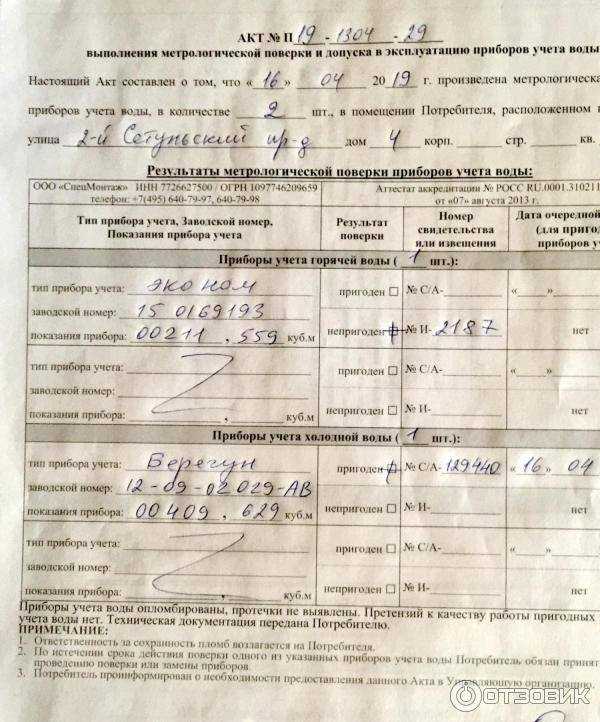 АКТ № П 19 - 1304 - 29
выполнения метрологической поверки и допуска в эксплуатацию приборов учета воды
Настоящий Акт составлен о том, что « 16 » 04 20 19 г. произведена метрологическа
приборов учета воды, в количестве 2 шт., в помещении Потребителя, расположенном
улица 2-й Сетуньский пр-д дом 4 корп. стр. кв.
Результаты метрологической поверки приборов учета воды:
ООО «СпецМонтаж» ИНН 7726627500 / ОГРН 1097746209659 Аттестат аккредитации № РОСС RU.0001.310211
телефон: +7(495) 640-79-97, 640-79-98 от «07» августа 2013 г.
Тип прибора учета, Заводской номер, Результат Номер Дата очередной
Показания прибора учета поверки свидетельства (для пригод
или извещения приборов уч
Приборы учета горячей воды ( 1 шт.):
тип прибора учета: эконом пригоден □ № С/А- « »
заводской номер: 15 0169193
показания прибора: 00211 , 559 куб.м непригоден □ № И- 2187 нет
тип прибора учета: пригоден □ № С/А- « »
заводской номер:
показания прибора: , куб.м непригоден □ № И- нет
Приборы учета холодной воды ( 1 шт.):
тип прибора учета: Берегун пригоден □ № С/А- 129440 « 16 » 04
заводской номер: 12-09-02029-АВ
показания прибора: 00409 , 629 куб.м непригоден □ № И- нет
тип прибора учета: пригоден □ № С/А- « »
заводской номер:
показания прибора: , куб.м непригоден □ № И- нет
Приборы учета воды опломбированы, протечки не выявлены. Претензий к качеству работы пригодных
учета воды нет. Техническая документация передана Потребителю.
ПРИМЕЧАНИЕ:
1. Ответственность за сохранность пломб возлагается на Потребителя.
2. По истечении срока действия поверки одного из указанных приборов учета воды Потребитель обязан принят
проведению поверки или замены приборов.
3. Потребитель проинформирован о необходимости предоставления данного Акта в Управляющую организацию.
ОТЗОВИК